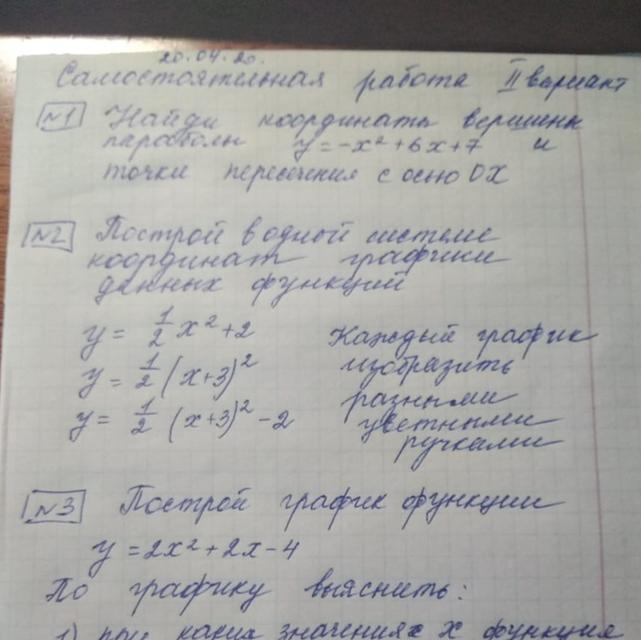 20.04.20.
Самостоятельная работа II вариант
№1 Найди координаты вершины
параболы y=-x²+6x+7 и
точки пересечения с осью OX
№2 Построй в одной системе
координат графики
данных функций
y= 1/2 x²+2 Каждый график
y= 1/2 (x+3)² изобразить
разными
y= 1/2 (x+3)²-2 цветными
ручками
№3 Построй график функции
y=2x²+2x-4
По графику выяснить:
1) при каких значениях x функция